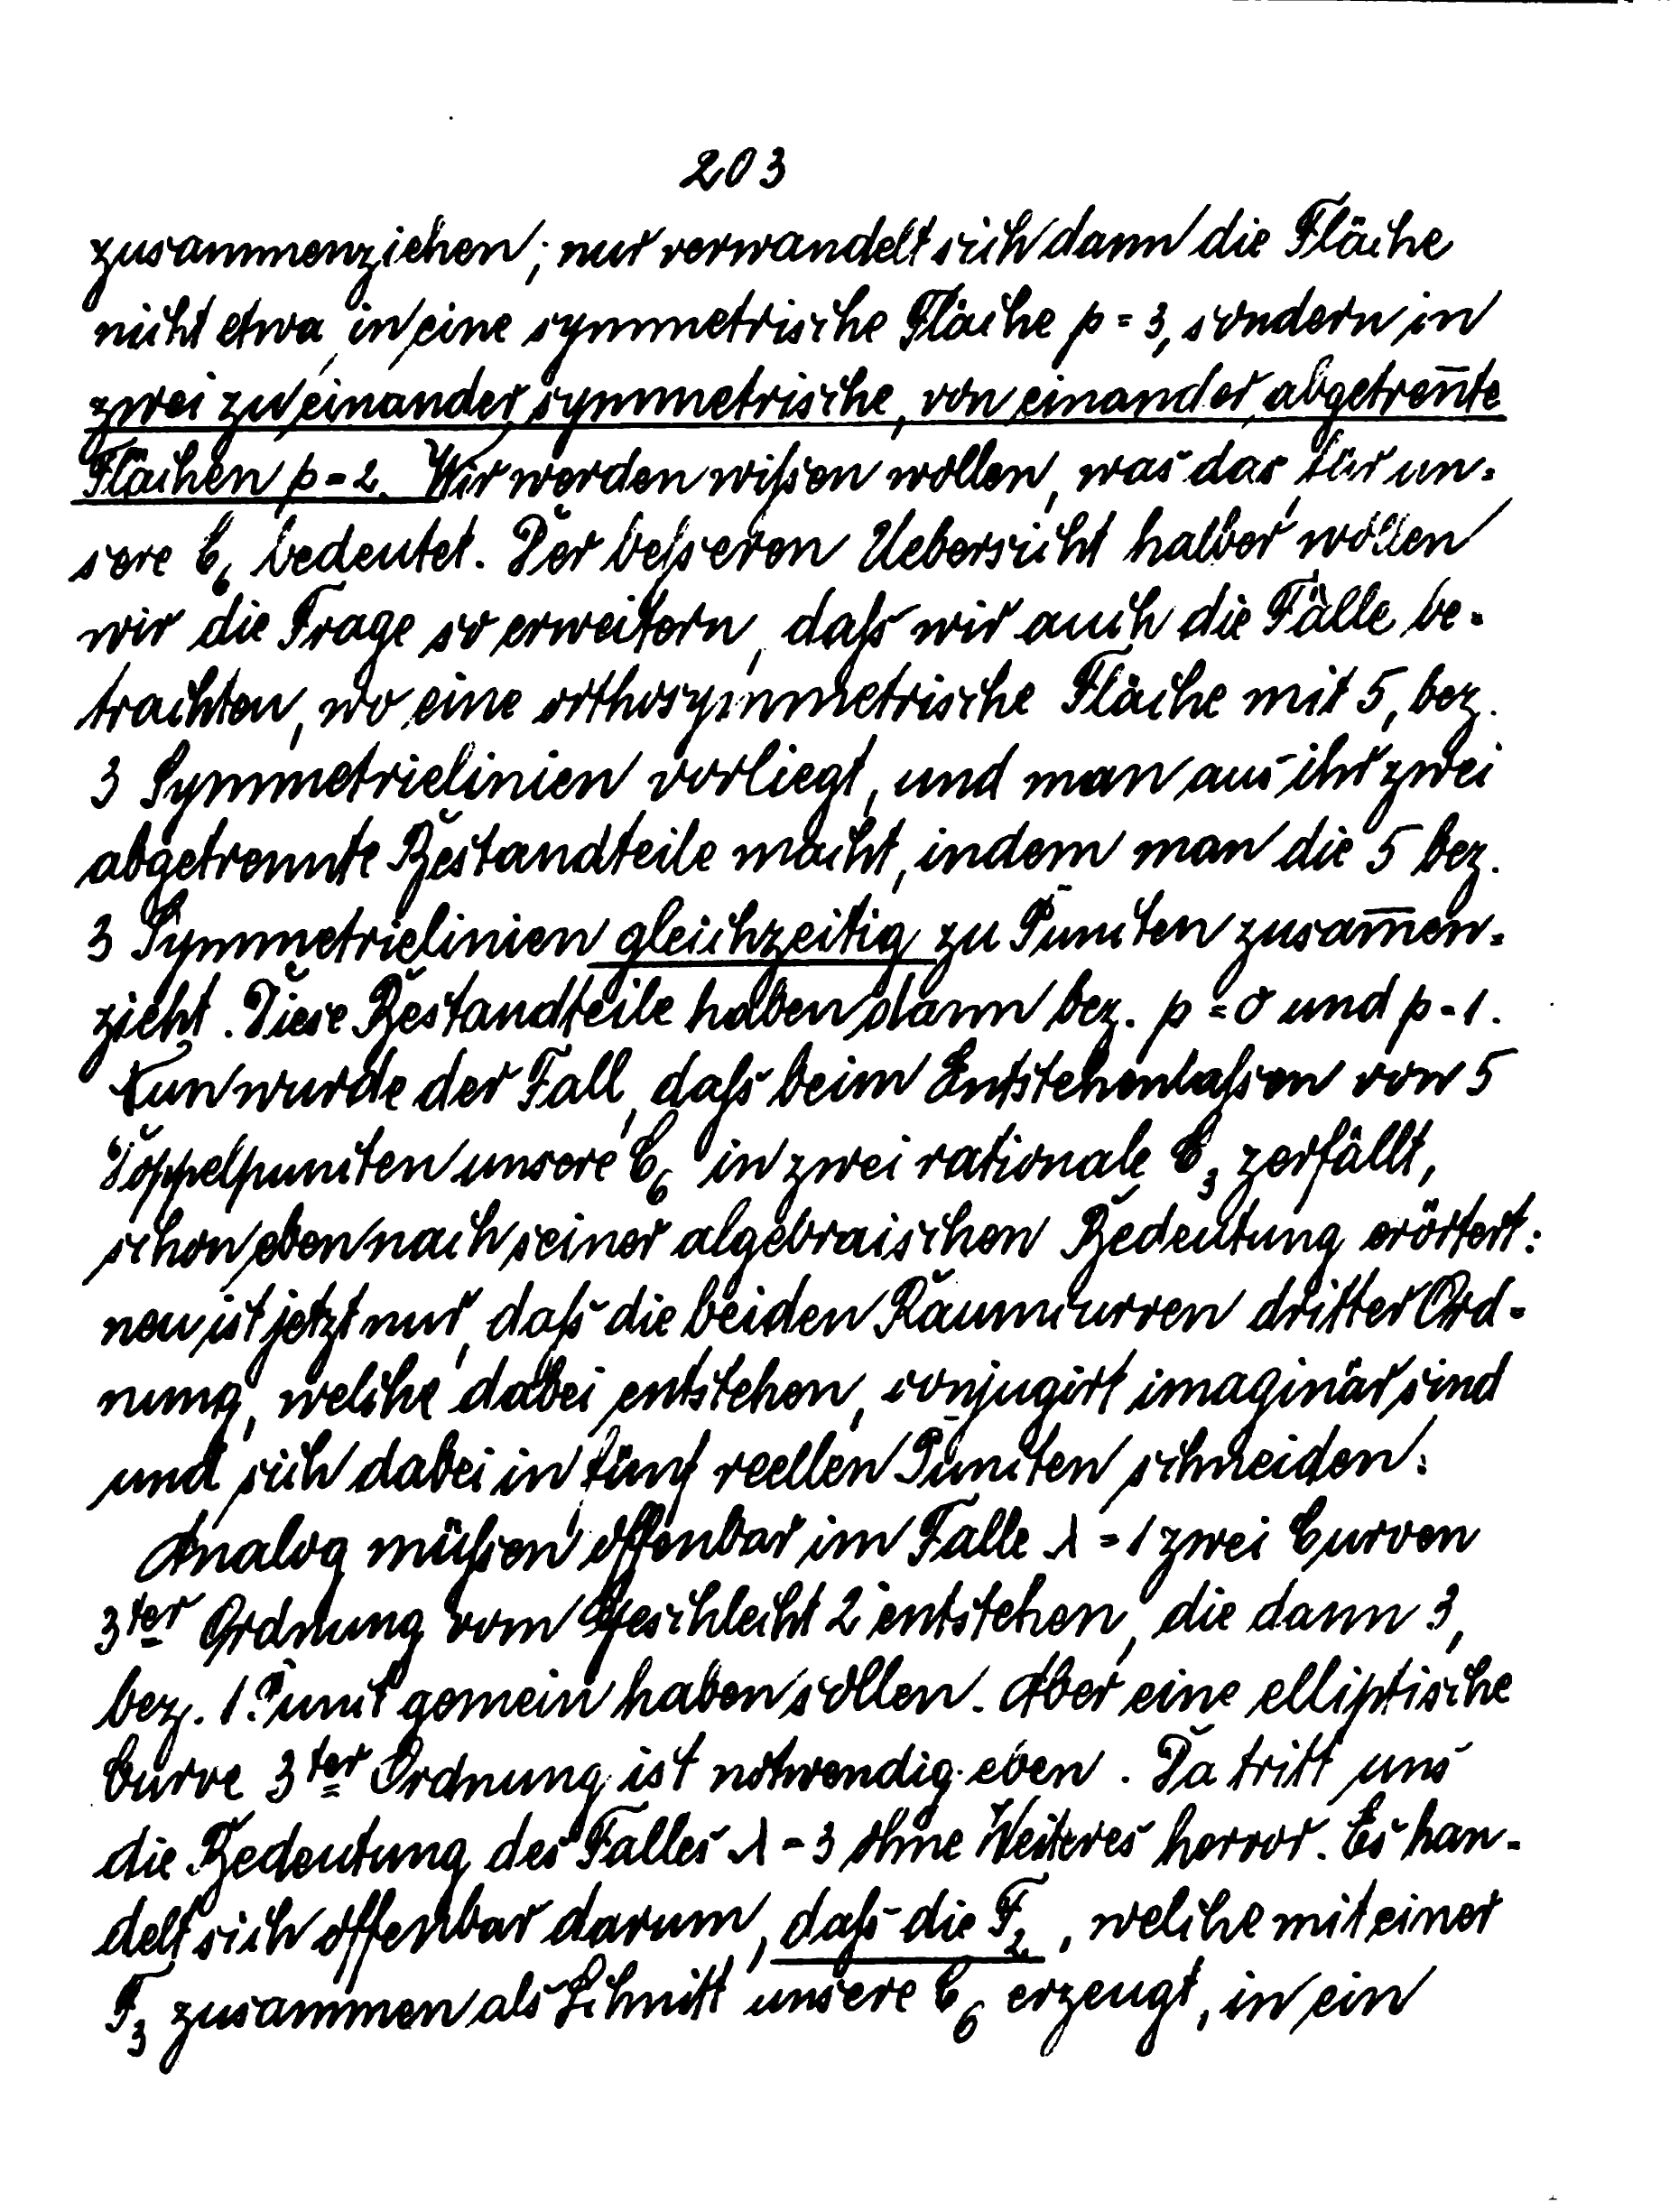 203
zusammenziehen; nur verwandelt sich dann die Fläche
nicht etwa in eine symmetrische Fläche p = 3, sondern in
zwei zu einander symmetrische, von einander abgetren̄te
Flächen p = 2. Wir werden wißen wollen, was das für un-
sere C₆ bedeutet. Der beßeren Uebersicht halber wollen
wir die Frage so erweitern, daß wir auch die Fälle be-
trachten, wo eine orthosymmetrische Fläche mit 5, bez.
3 Symmetrielinien vorliegt, und man aus ihr zwei
abgetrennte Bestandteile macht, indem man die 5 bez.
3 Symmetrielinien gleichzeitig zu Puncten zusam̄en-
zieht. Diese Bestandteile haben dann bez. p = 0 und p = 1.
Nun wurde der Fall, daß beim Entstehenlaßen von 5
Doppelpuncten unsere C₆ in zwei rationale C₃ zerfällt,
schon eben nach seiner algebraischen Bedeutung erörtert:
neu ist jetzt nur, daß die beiden Raumcurven dritter Ord-
nung, welche dabei entstehen, conjugirt imaginär sind
und sich dabei in fünf reellen Puncten schneiden.
Analog müßen offenbar im Falle λ = 1 zwei Curven
3ter Ordnung vom Geschlecht 2 entstehen, die dann 3,
bez. 1 Punct gemein haben sollen. Aber eine elliptische
Curve 3ter Ordnung ist notwendig eben. Da tritt uns
die Bedeutung des Falles λ = 3 ohne Weiteres hervor. Es han-
delt sich offenbar darum, daß die F₂, welche mit einer
F₃ zusammen als Schnitt unsere C₆ erzeugt, in ein